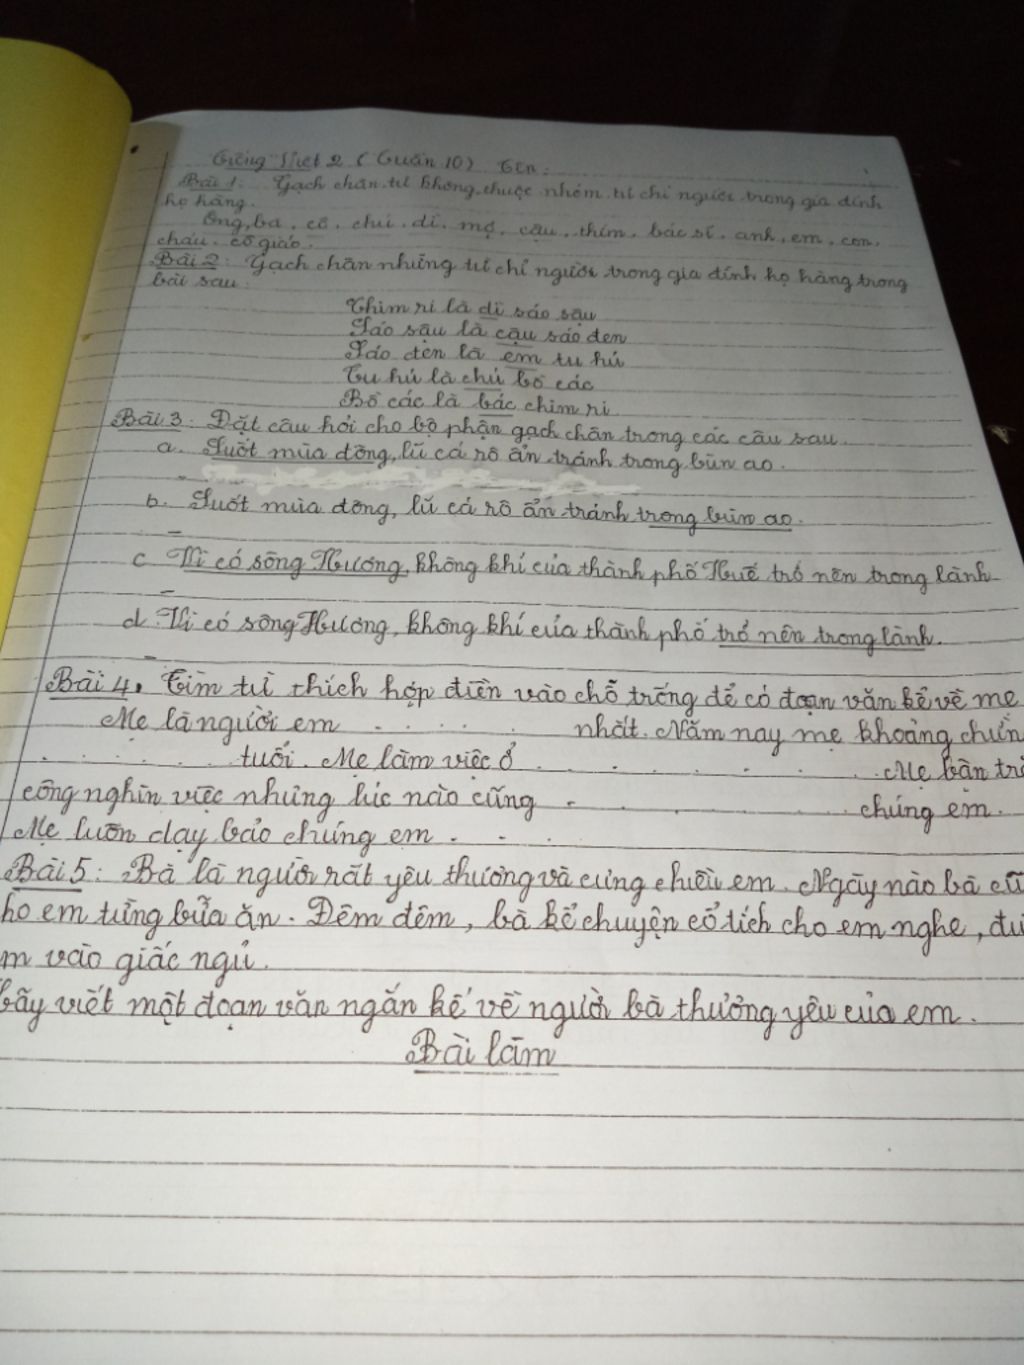 Tiếng Việt 2 (Tuần 10) Tên:
Bài 1: Gạch chân từ không thuộc nhóm từ chỉ người trong gia đình
họ hàng.
Ông, bà, cô, chú, dì, mợ, cậu, thím, bác sĩ, anh, em, con,
cháu, cô giáo.
Bài 2: Gạch chân những từ chỉ người trong gia đình họ hàng trong
bài sau:
Chim ri là dì sáo sậu
Sáo sậu là cậu sáo đen
Sáo đen là em tu hú
Tu hú là chú bồ các
Bồ các là bác chim ri
Bài 3: Đặt câu hỏi cho bộ phận gạch chân trong các câu sau.
a. Suốt mùa đông, lũ cá rô ẩn tránh trong bùn ao.
b. Suốt mùa đông, lũ cá rô ẩn tránh trong bùn ao.
c. Vì có sông Hương, không khí của thành phố Huế trở nên trong lành
d. Vì có sông Hương, không khí của thành phố trở nên trong lành.
Bài 4. Tìm từ thích hợp điền vào chỗ trống để có đoạn văn kể về mẹ
Mẹ là người em . . . . . nhất. Năm nay mẹ khoảng chừn
. . . . . . tuổi. Mẹ làm việc ở . . . . . . . . Mẹ bận tră
công nghìn việc nhưng lúc nào cũng . . . . chúng em.
Mẹ luôn dạy bảo chúng em . . .
Bài 5: Bà là người rất yêu thương và cưng chiều em. Ngày nào bà cũ
ho em từng bữa ăn. Đêm đêm, bà kể chuyện cổ tích cho em nghe, đư
m vào giấc ngủ.
hãy viết một đoạn văn ngắn kể về người bà thương yêu của em.
Bài làm